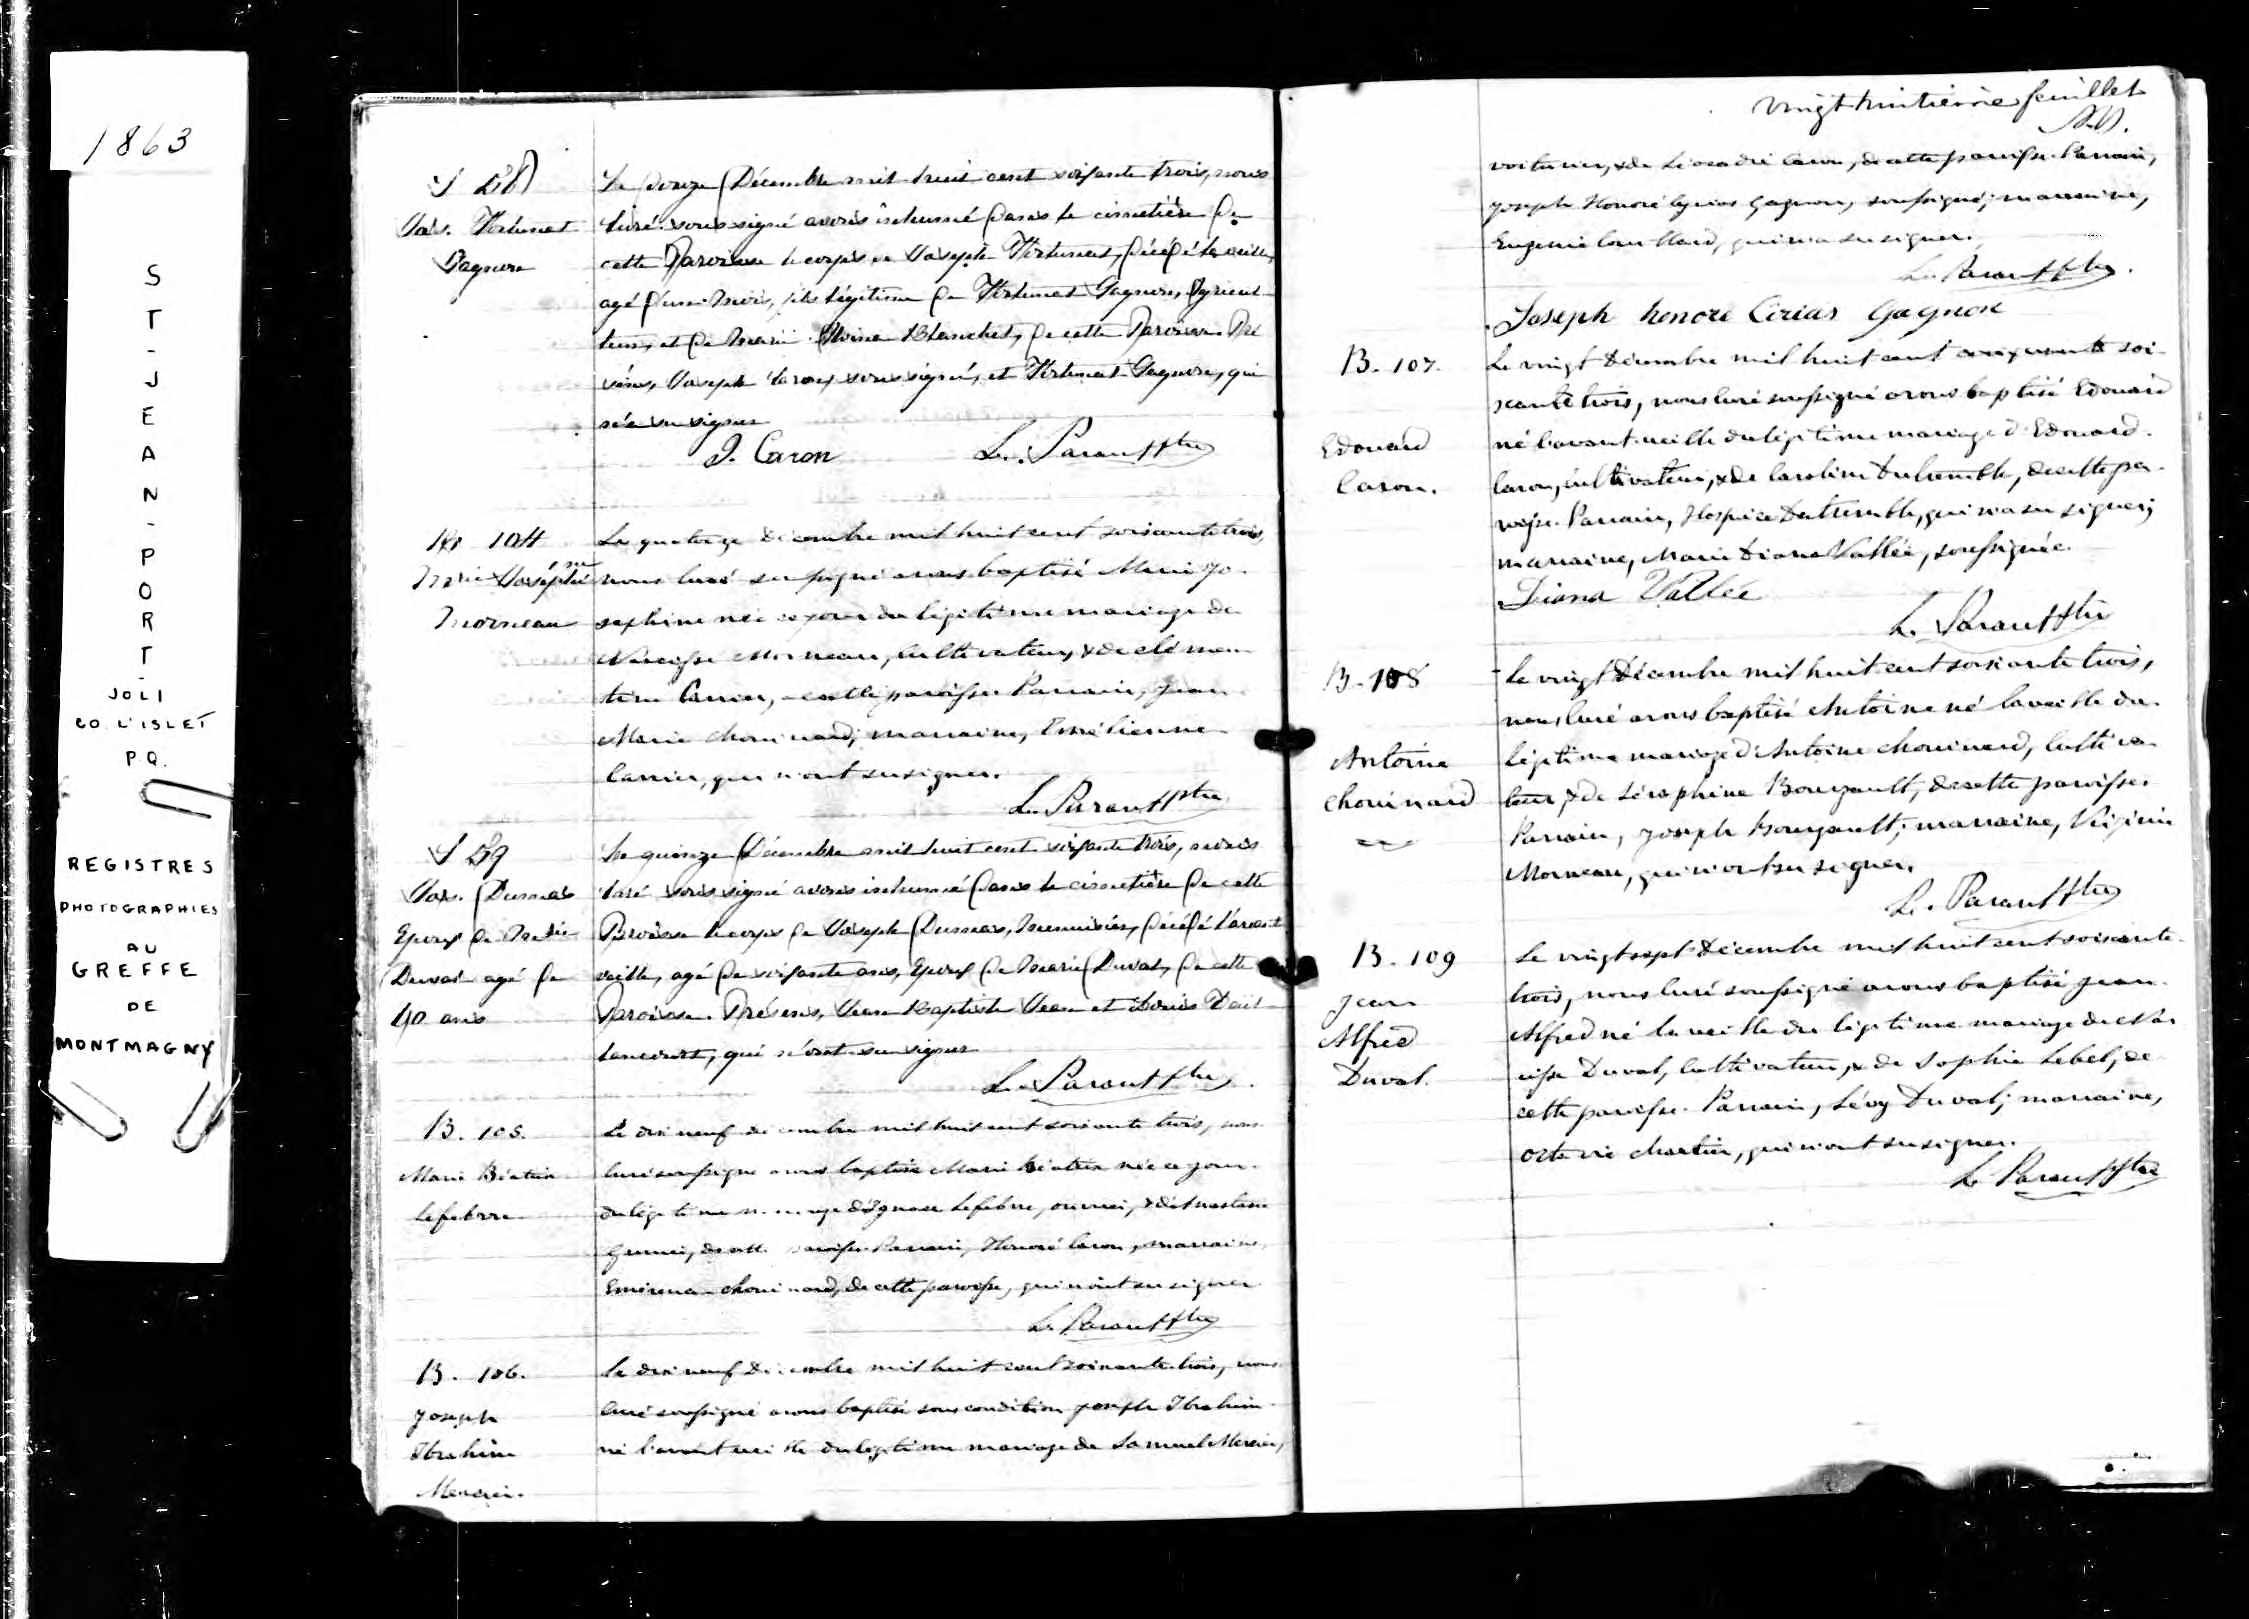 1863
ST-JEAN-PORT-
JOLI
CO. L'ISLET
P.Q.
REGISTRES
PHOTOGRAPHIES
AU
GREFFE
DE
MONTMAGNY
Jos. Fortunat
Gagnon
Le douze Décembre mil huit cent soixante trois, nous
curé soussigné avons inhumé dans le cimetière de
cette Paroisse le corps de Joseph Fortunat, décédé la veille,
agé d'un mois, fils légitime de Fortunat Gagnon, Agricul-
teur, et de Marie Blanchet, de cette Paroisse. Pré-
sens, Joseph Caron soussigné, et Fortunat Gagnon, qui
n'a su signer
J. Caron L. Parant Ptre
B. 104
Marie Joséphine
Morneau
Le quatorze décembre mil huit cent soixante trois,
nous curé soussigné avons baptisé Marie Jo-
séphine née ce jour du légitime mariage de
Narcisse Morneau, cultivateur, & de Clémen-
tine Carrier, de cette paroisse. Parrain, Jean
Marie Chouinard; marraine, Emélienne
Carrier, qui n'ont su signer.
L. Parant Ptre
S 89
Jos. Dumas
Epoux de Marie
Duval agé de
40 ans
Le quinze Décembre mil huit cent soixante trois, nous
curé soussigné avons inhumé dans le cimetière de cette
Paroisse le corps de Joseph Dumas, Menuisier, décédé l'avant
veille, agé de soixante ans, Epoux de Marie Duval, de cette
Paroisse. Présens, Jean Baptiste Jean et Louis Dail-
lancourt, qui n'ont su signer
L. Parant Ptre
B. 105.
Marie Béatrix
Lefebvre
Le dix neuf décembre mil huit cent soixante trois, nous
curé soussigné avons baptisé Marie Béatrix née ce jour
du légitime mariage d'Ignace Lefebvre, ouvrier, & d'Anastasie
de cette paroisse. Parrain, Honoré Caron, marraine,
Chouinard, de cette paroisse, qui n'ont su signer
L. Parant Ptre
B. 106.
Joseph
Ibrahim
Mercier.
Le dix neuf décembre mil huit cent soixante trois, nous
curé soussigné avons baptisé sous condition Joseph Ibrahim
né l'avant veille du légitime mariage de Samuel Mercier,
vingt huitième feuillet
voiturier, & de Léocadie Caron, de cette paroisse. Parrain,
Joseph Honoré Gagnon, soussigné; marraine,
Eugénie Couillard, qui n'a su signer.
L. Parant Ptre.
Joseph honore Cirias Gagnon
B. 107.
Edouard
Caron.
Le vingt Décembre mil huit cent soi-
xante trois, nous curé soussigné avons baptisé Edouard
né l'avant veille du légitime mariage d'Edouard
Caron, cultivateur, & de Caroline Dutremble, de cette pa-
roisse. Parrain, Hospice Dutremble, qui n'a su signer;
marraine, Marie Diana Vallée, soussignée.
Diana Vallée
L. Parant Ptre
B. 108
Antoine
Chouinard
Le vingt Décembre mil huit cent soixante trois,
nous curé avons baptisé Antoine né la veille du
légitime mariage d'Antoine Chouinard, cultiva-
teur, & de Séraphine Bourgault, de cette paroisse.
Parrain, Joseph Bourgault; marraine, Virginie
Morneau, qui n'ont su signer.
L. Parant Ptre
B. 109
Jean
Alfred
Duval.
Le vingt sept Décembre mil huit cent soixante
trois, nous curé soussigné avons baptisé Jean
Alfred né la veille du légitime mariage de Nar-
cisse Duval, cultivateur, & de Sophie Lebel, de
cette paroisse. Parrain, Lévy Duval; marraine,
Octavie Chartier, qui n'ont su signer.
L. Parant Ptre